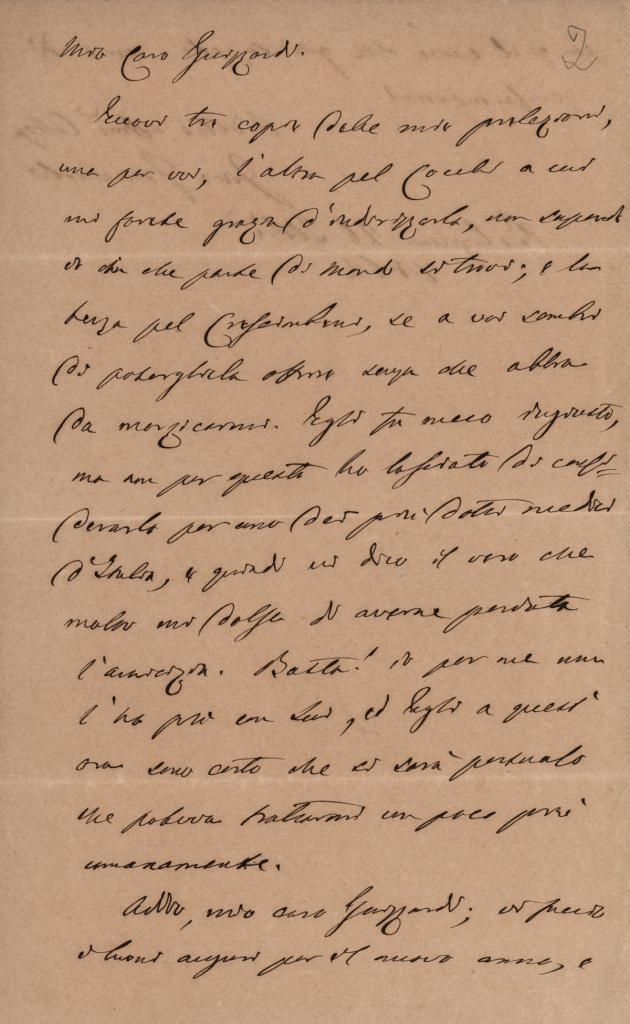 2
Mio Caro Guizzardi.
Eccovi tre copie delle mie prolezioni,
una per voi, l'altra pel Cocchi a cui
mi farete grazia d'indirizzarla, non sapendo
io in che parte di mondo si trovi; e la
terza pel Crescimbeni, se a voi sembri
di potergliela offrire senza che abbia
da morsicarmi. Egli fu meco ingiusto,
ma non per questo ho lasciato di consi=
derarlo per uno dei più dotti medici
d'Italia, e quindi vi dico il vero che
molto mi dolse di averne perduta
l'amicizia. Basta! io per me non
l'ho più con Lui, ed Egli a quest'
ora sono certo che si sarà persuaso
che poteva trattarmi un poco più
umanamente.
Addio, mio caro Guizzardi; vi faccio
i buoni auguri per il nuovo anno, e